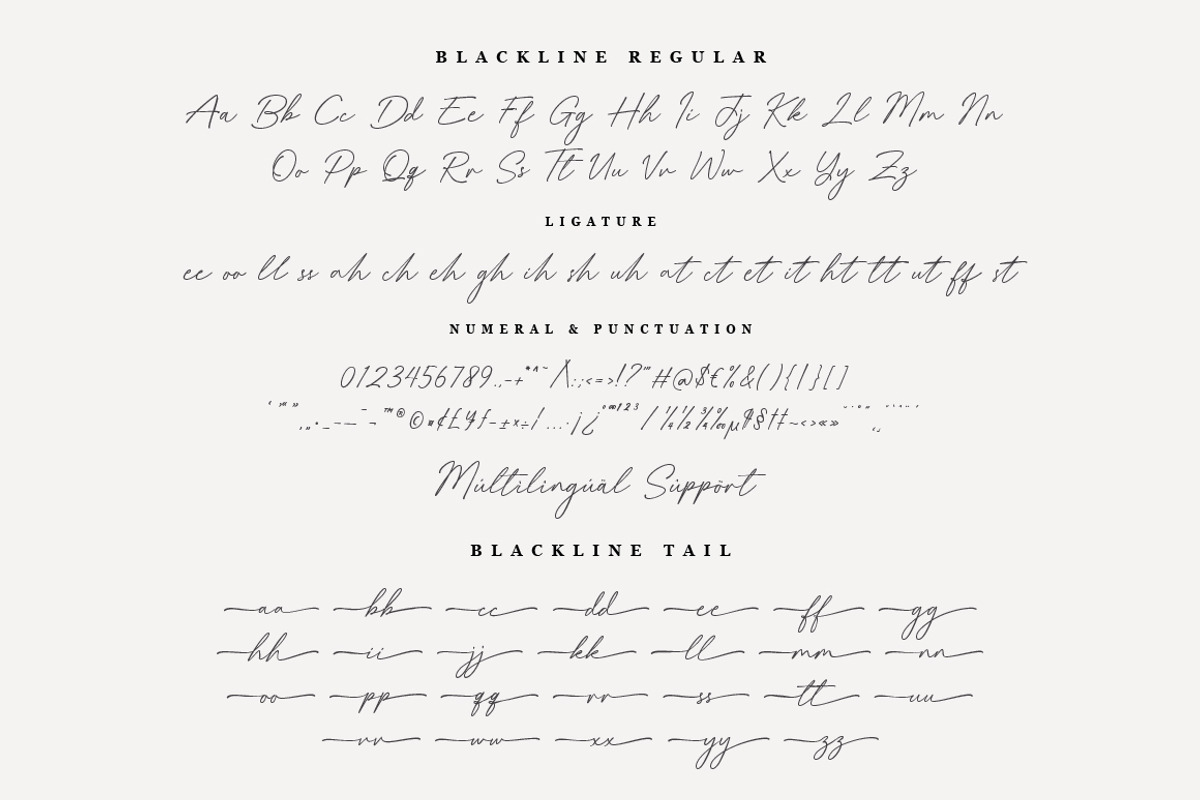 BLACKLINE REGULAR
Aa Bb Cc Dd Ee Ff Gg Hh Ii Jj Kk Ll Mm Nn
Oo Pp Qq Rr Ss Tt Uu Vv Ww Xx Yy Zz
LIGATURE
ee oo ll ss ah ch eh gh ih sh uh at ct et it ht tt ut ff st
NUMERAL & PUNCTUATION
0123456789.,-+*^~/\:;<=>!?'"#@$€%&(){|}[]
™®©¤¢£¥ƒ-±×÷/…·¡¿ºªº123/¼½¾‰µ¶§†‡~<>«»
Múltilingúäl Süppört
BLACKLINE TAIL
aa bb cc dd ee ff gg
hh ii jj kk ll mm nn
oo pp qq rr ss tt uu
vv ww xx yy zz